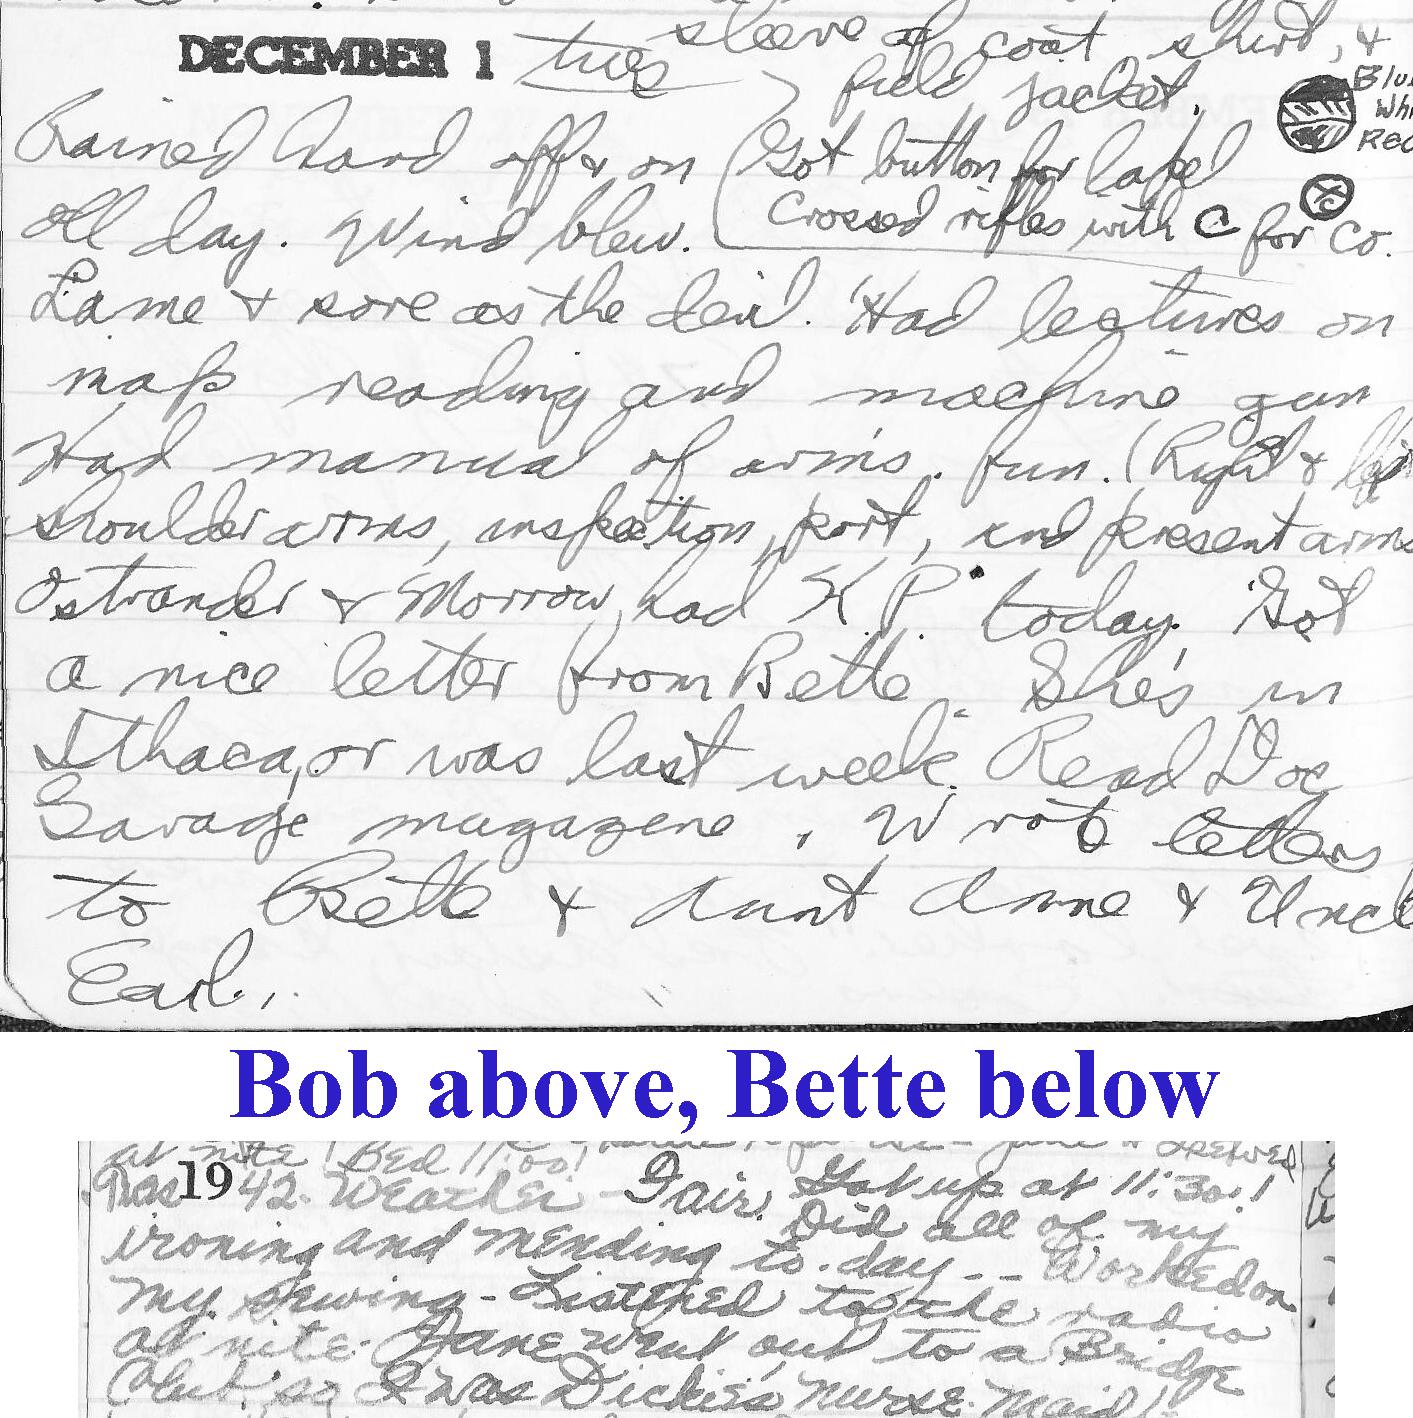 sleeve of coat, shirt, &
DECEMBER 1 tues
field jacket.
Blue
Whi
Red
Rained hard off & on
(Got button for lapel
all day. Wind blew.
Crossed rifles with C for Co.
Lame & sore as the devil. Had lectures on
map reading and machine gun
Had manual of arms. fun. (Right & left
shoulder arms, inspection, port, and present arms
Ostrander & Morrow had K.P. today. Got
a nice letter from Bette. She's in
Ithaca, or was last week. Read Doc
Savage magazene. Wrote letters
to Bette & Aunt Anne & Uncle
Earl.
Bob above, Bette below
at nite! Bed 11:00!
Tues 1942. Weather - Fair. Got up at 11:30!
Did all of my
ironing and mending to-day -- Worked on
my sewing - Listened to the radio
at nite. Jane went out to a Bridge
Club so I was Dickie's nurse-maid!